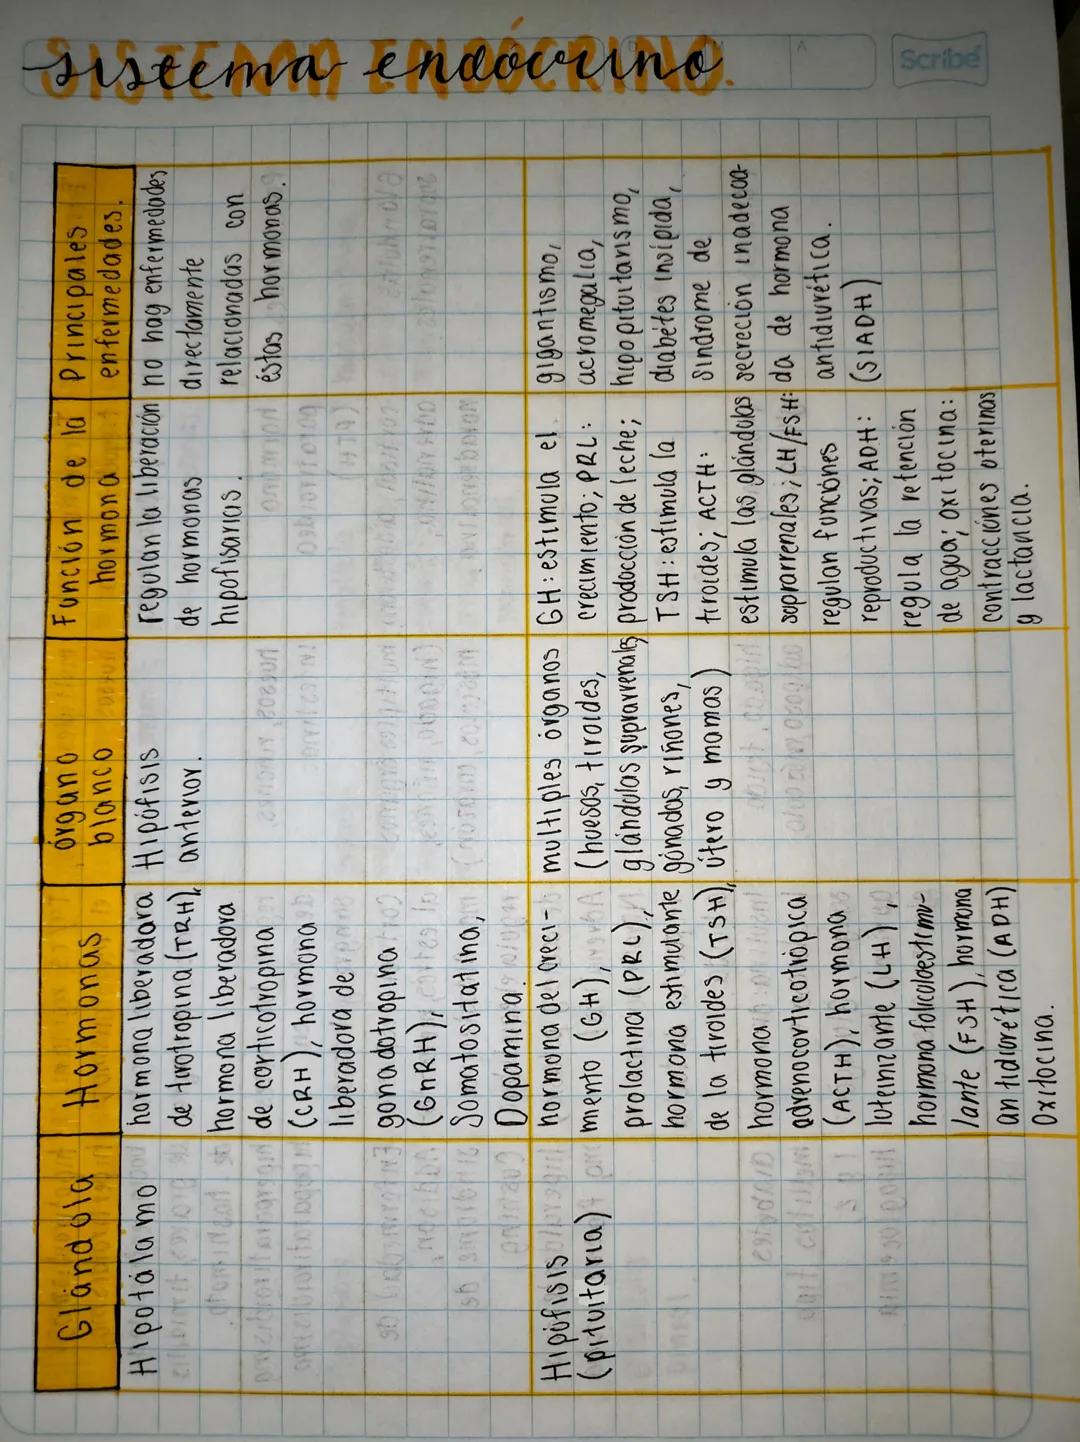 sistema endócrino
SISTEMA ENDÓCRINO.
Scribe
Glándola
Hormonas
órgano
blanco
Función de la
hormona
Principales
enfermedades.
Hipotálamo
hormona liberadora
de tirotropina (TRH),
hormona liberadora
de corticotropina
(CRH), hormona
liberadora de
gonadotropina
(GnRH),
Somatositatina,
Dopamina.
Hipófisis
anterior.
regulan la liberación
de hormonas
hipofisarias.
no hay enfermedades
directamente
relacionadas con
éstas hormonas.
Hipófisis
(pituitaria)
hormona del creci-
miento (GH),
prolactina (PRL),
hormona estimulante
de la tiroides (TSH),
hormona
adrenocorticotrópica
(ACTH), hormona
luteinizante (LH),
hormona folicoloestimu-
lante (FSH), hormona
antidiorética (ADH)
Oxitocina.
multiples órganos
(huesos, tiroides,
glándulas suprarrenales
gónadas, riñones,
útero y mamas)
GH: estimula el
crecimiento; PRL:
prodocción de leche;
TSH: estimula la
tiroides; ACTH:
estimula las glándulas
soprarrenales; LH/FSH:
regulan funciónes
reproductivas; ADH:
regula la retención
de agua; oxitocina:
contracciónes oterinas
y lactancia.
gigantismo,
acromegalia,
hipopituitarismo,
diabétes insípida,
sindrome de
secreción inadecoa-
da de hormona
antidiurética.
(SIADH)